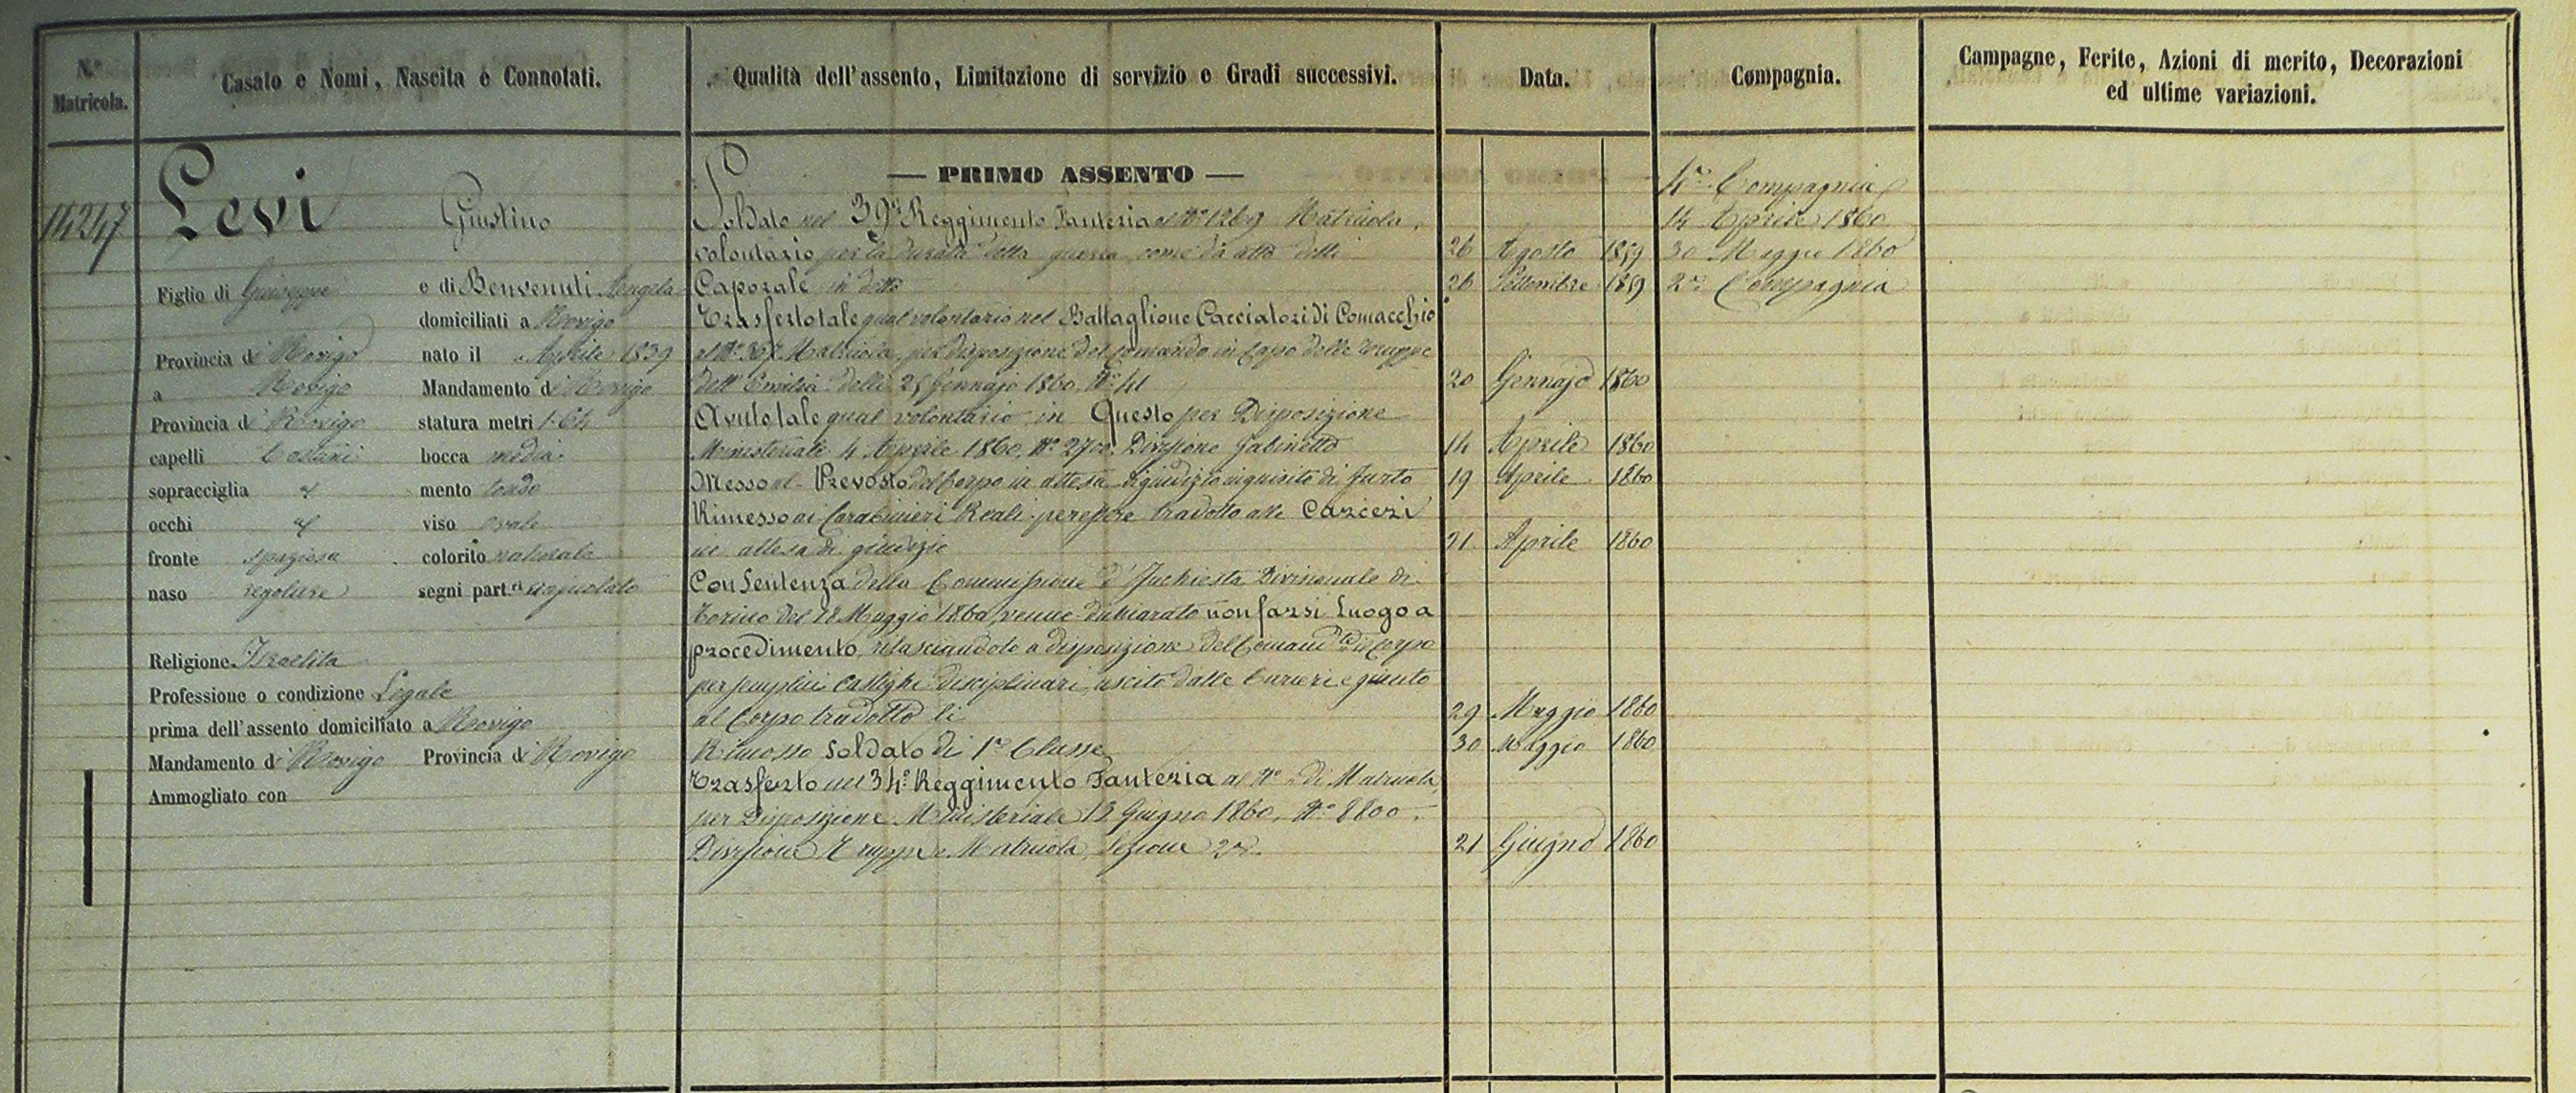 N.º Matricola.
Casato e Nomi, Nascita e Connotati.
Qualità dell'assento, Limitazione di servizio e Gradi successivi.
Data.
Compagnia.
Campagne, Ferite, Azioni di merito, Decorazioni
ed ultime variazioni.
14247
Levi Giustino
Figlio di Giuseppe e di Benvenuti Angela
domiciliati a Rovigo
Provincia di Rovigo nato il Aprile 1839
a Rovigo Mandamento di Rovigo
Provincia di Rovigo statura metri 1.64
capelli Castani bocca media
sopracciglia id mento tondo
occhi id viso ovale
fronte spaziosa colorito naturale
naso regolare segni part.ri
Religione Israelita
Professione o condizione Legale
prima dell'assento domiciliato a Rovigo
Mandamento di Rovigo Provincia di Rovigo
Ammogliato con
— PRIMO ASSENTO —
Soldato nel 39º Reggimento Fanteria al Nº 1269 Matricola,
volontario per la durata della guerra come da atto delli 26 Agosto 1859
Caporale in detto 26 Settembre 1859
Trasferto tale qual volontario nel Battaglione Cacciatori di Comacchio
al Nº 367 Matricola, per disposizione del Comando in Capo delle Truppe
dell'Emilia delli 25 Gennajo 1860, Nº 41 20 Gennajo 1860
Avuto tale qual volontario in Questo per Disposizione
Ministeriale 4 Aprile 1860, Nº 2702. Divisione Gabinetto 14 Aprile 1860
Messo al Prevosto del Corpo in attesa di giudizio inquisito di furto 19 Aprile 1860
Rimesso ai Carabinieri Reali per essere tradotto alle Carceri
in attesa di giudizio 21 Aprile 1860
Con Sentenza della Commissione d'Inchiesta Divisionale di
Torino del 28 Maggio 1860, venne dichiarato non farsi luogo a
procedimento rilasciandolo a disposizione del Comand.te del Corpo
per semplici castighi disciplinari, uscito dalle Carceri e giunto
al Corpo tradotto li 29 Maggio 1860
Rimosso Soldato di 1ª Classe 30 Maggio 1860
Trasferto nel 34º Reggimento Fanteria al Nº di Matricola,
per Disposizione Ministeriale 13 Giugno 1860, Nº 8800.
Divisione Truppa e Matricola, Sezione 2ª. 21 Giugno 1860
4ª Compagnia
14 Aprile 1860
30 Maggio 1860
2ª Compagnia